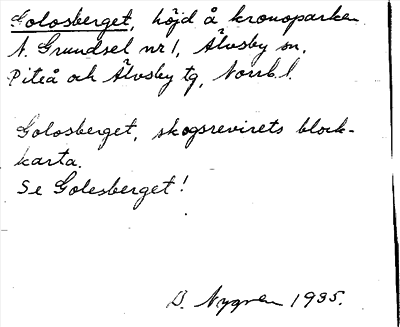 Golosberget, höjd å kronoparken
N. Grundsel nr 1, Älvsby sn,
Piteå och Älvsby tg, Norrb. l.
Golosberget, skogsrevirets block-
karta.
Se Golesberget!
D. Nygren 1935.